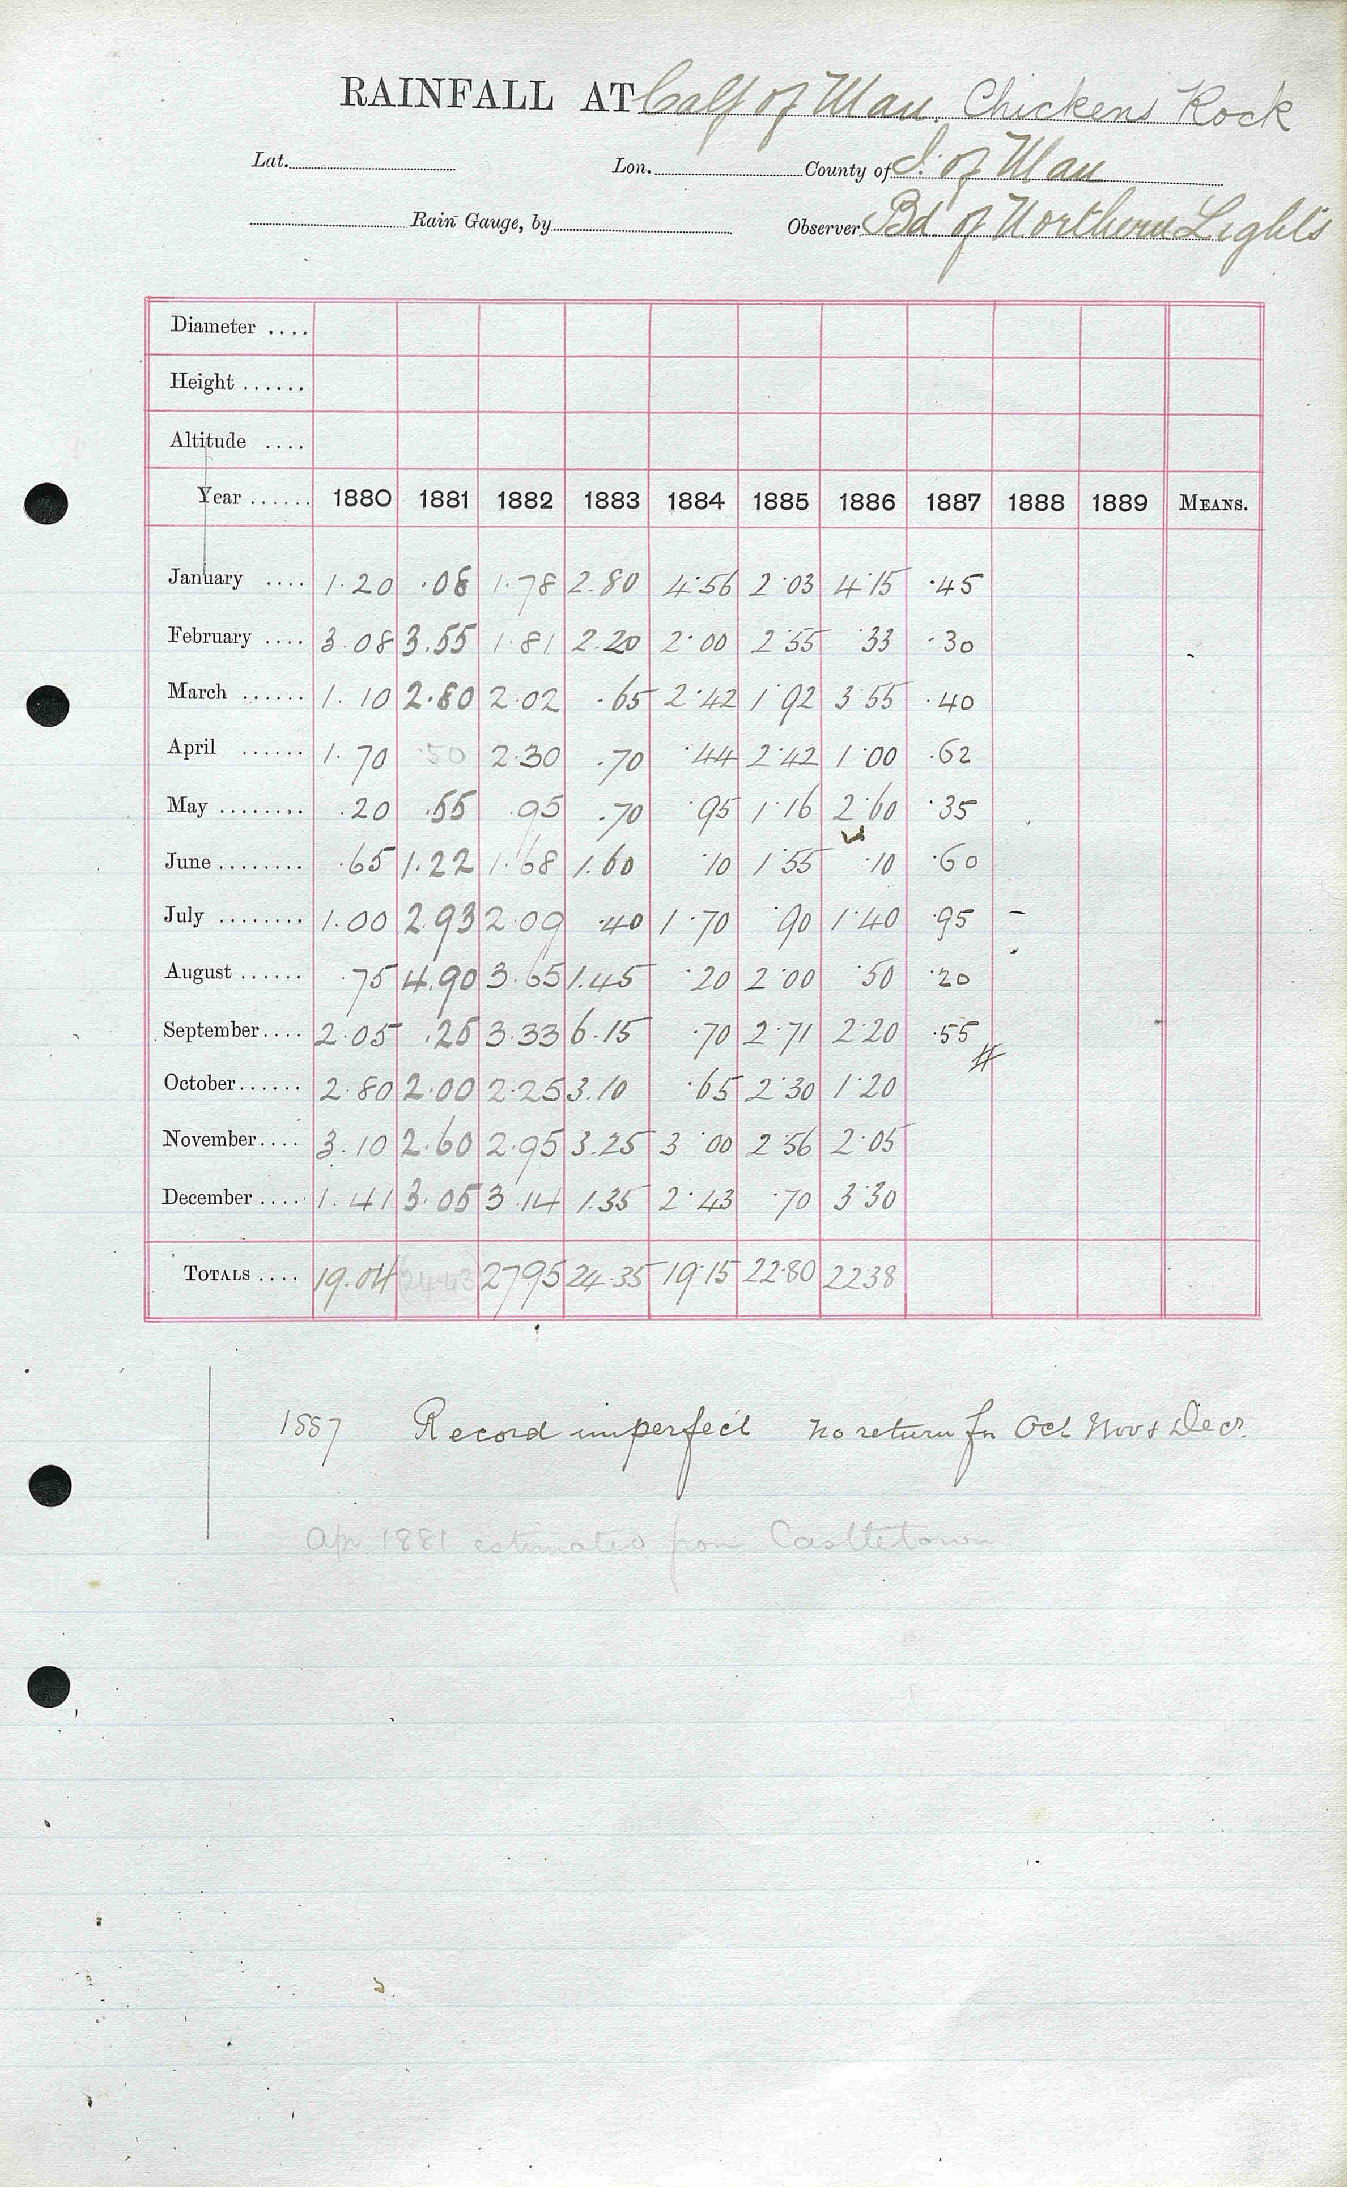 RAINFALL AT Calf of Man. Chickens Rock
Lat. Lon. County of I. of Man
Rain Gauge, by Observer Bd. of Northern Lights
Diameter ....
Height ......
Altitude ....
Year ...... 1880 1881 1882 1883 1884 1885 1886 1887 1888 1889 MEANS.
January .... 1.20 .08 1.78 2.80 4.56 2.03 4.15 .45
February .... 3.08 3.55 1.81 2.20 2.00 2.55 .33 .30
March ...... 1.10 2.80 2.02 .65 2.42 1.92 3.55 .40
April ...... 1.70 .50 2.30 .70 .44 2.42 1.00 .62
May ........ .20 .55 .95 .70 .95 1.16 2.60 .35
June ........ .65 1.22 1.68 1.60 .10 1.55 .10 .60
July ........ 1.00 2.93 2.09 .40 1.70 .90 1.40 .95 –
August ...... .75 4.90 3.65 1.45 .20 2.00 .50 .20
September .... 2.05 .25 3.33 6.15 .70 2.71 2.20 .55 #
October ...... 2.80 2.00 2.25 3.10 .65 2.30 1.20
November .... 3.10 2.60 2.95 3.25 3.00 2.56 2.05
December .... 1.41 3.05 3.14 1.35 2.43 .70 3.30
TOTALS .... 19.04 (24.43) 27.95 24.35 19.15 22.80 22.38
1887 Record imperfect no return for Oct Nov & Decr.
Apr 1881 estimated from Castletown